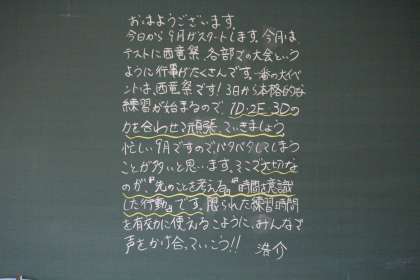 おはようございます。
今日から9月がスタートします。今月は、
テストに西竜祭、各部での大会という
ように行事がたくさんです。一番の大イベ
ントは、西竜祭です！3日から本格的な
練習が始まるので、1D・2E・3Dの
力を合わせて頑張っていきましょう
忙しい9月ですのでバタバタしてしまう
ことが多いと思います。そこで大切な
のが、『先のことを考える』『時間を意識
した行動』です。限られた練習時間
を有効に使えるように、みんなで
声をかけ合っていこう!!
浩介